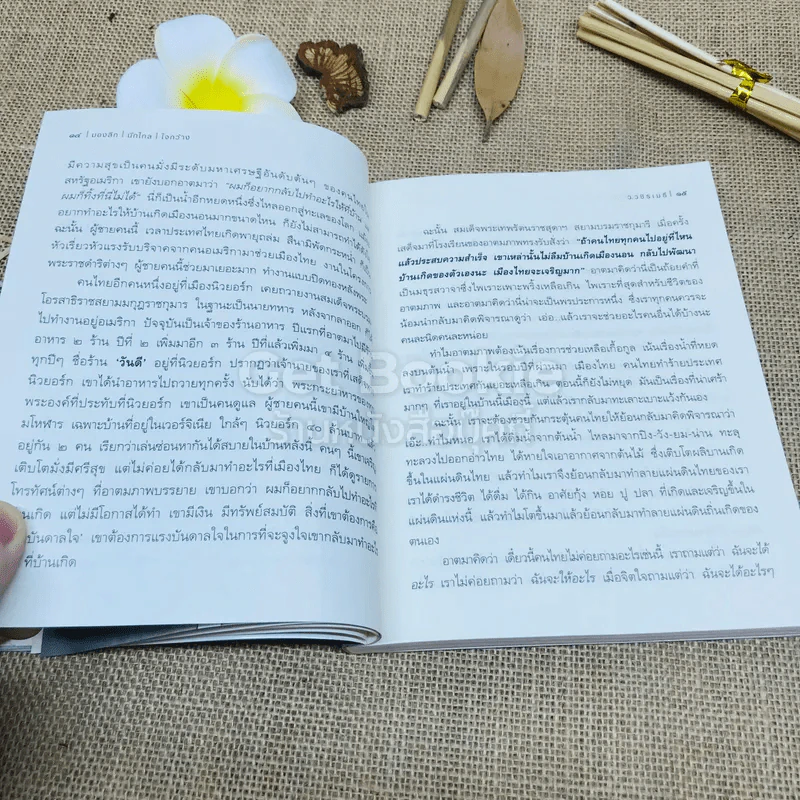 ๑๔ | มองลึก | นึกไกล | ใจกว้าง
มีความสุขเป็นคนมั่งมีระดับมหาเศรษฐีอันดับต้นๆ ของคนไทยใน
สหรัฐอเมริกา เขายังบอกอาตมาว่า “ผมก็อยากกลับไปทำอะไรให้ที่บ้าน
ผมก็ทิ้งที่นี่ไม่ได้” นี่ก็เป็นน้ำอีกหยดหนึ่งซึ่งไหลออกสู่ทะเลของโลก
อยากทำอะไรให้บ้านเกิดเมืองนอนมากขนาดไหน ก็ยังไม่สามารถทำได้
ฉะนั้น ผู้ชายคนนี้ เวลาประเทศไทยเกิดพายุถล่ม สึนามิพัดกระหน่ำ
หัวเรี่ยวหัวแรงรับบริจาคจากคนอเมริกามาช่วยเมืองไทย งานในโครง
พระราชดำริต่างๆ ผู้ชายคนนี้ช่วยมาเยอะมาก ทำงานแบบปิดทองหลังพระ
คนไทยอีกคนหนึ่งอยู่ที่เมืองนิวยอร์ก เคยถวายงานสมเด็จพระบรม
โอรสาธิราชสยามมกุฎราชกุมาร ในฐานะเป็นนายทหาร หลังจากลาออก
ไปทำงานอยู่อเมริกา ปัจจุบันเป็นเจ้าของร้านอาหาร ปีแรกที่อาตมาไปมี
อาหาร ๒ ร้าน ปีที่ ๒ เพิ่มมาอีก ๓ ร้าน ปีที่แล้วเพิ่มมา ร้าน เพิ่ม
ทุกปีๆ ชื่อร้าน ‘วันดี’ อยู่ที่นิวยอร์ก ปรากฏว่าเจ้านายของเราที่เสด็จ
นิวยอร์ก เขาได้นำอาหารไปถวายทุกครั้ง นับได้ว่า พระกระยาหารของ
พระองค์ที่ประทับที่นิวยอร์ก เขาเป็นคนดูแล ผู้ชายคนนี้เขามีบ้านใหญ่
มโหฬาร เฉพาะบ้านที่อยู่ในเวอร์จิเนีย ใกล้ๆ นิวยอร์ก ๔๐ ห้อง
อยู่กัน ๒ คน เรียกว่าเล่นซ่อนหากันได้สบายในบ้านหลังนี้ คนๆ นี้
เติบโตมั่งมีศรีสุข แต่ไม่ค่อยได้กลับมาทำอะไรที่เมืองไทย ก็ได้ดูรายการ
โทรทัศน์ต่างๆ ที่อาตมภาพบรรยาย เขาบอกว่า ผมก็อยากกลับไปทำอะไร
แต่ไม่มีโอกาสได้ทำ เขามีเงิน มีทรัพย์สมบัติ สิ่งที่เขาต้องการคือ
บันดาลใจ’ เขาต้องการแรงบันดาลใจในการที่จะจูงใจเขากลับมาทำอะไร
ที่บ้านเกิด
ว.วชิรเมธี | ๑๕
ฉะนั้น สมเด็จพระเทพรัตนราชสุดาฯ สยามบรมราชกุมารี เมื่อครั้ง
เสด็จมาที่โรงเรียนของอาตมภาพทรงรับสั่งว่า “ถ้าคนไทยทุกคนไปอยู่ที่ไหน
แล้วประสบความสำเร็จ เขาเหล่านั้นไม่ลืมบ้านเกิดเมืองนอน กลับไปพัฒนา
บ้านเกิดของตัวเองนะ เมืองไทยจะเจริญมาก” อาตมาคิดว่านี่เป็นถ้อยคำที่
เป็นมธุรสวาจาซึ่งไพเราะเพราะพริ้งเหลือเกิน ไพเราะที่สุดสำหรับชีวิตของ
อาตมภาพ และอาตมาคิดว่านี่น่าจะเป็นพรประการหนึ่ง ซึ่งเราทุกคนควรจะ
น้อมนำกลับมาคิดพิจารณาดูว่า เอ่อ..แล้วเราจะช่วยอะไรคนอื่นได้บ้างนะ
คนละนิดคนละหน่อย
ทำไมอาตมภาพต้องเน้นเรื่องการช่วยเหลือเกื้อกูล เน้นเรื่องน้ำที่หยด
ลงบนต้นน้ำ เพราะในรอบปีที่ผ่านมา เมืองไทย คนไทยทำร้ายประเทศ
เราทำร้ายประเทศกันเยอะเหลือเกิน ตอนนี้ก็ยังไม่หยุด มันเป็นเรื่องที่น่าเศร้า
มากๆ ที่เราอยู่ในบ้านเมืองนี้ แต่แล้วเรากลับมาทะเลาะเบาะแว้งกันเอง
ฉะนั้น อาตมาจะต้องทำการกระตุ้นคนไทยให้ย้อนกลับมาคิดพิจารณาว่า
เอ๊ะ..ทำไมหนอ เราได้ดื่มน้ำจากต้นน้ำ ไหลมาจากปิง-วัง-ยม-น่าน ทะลุ
ทะลวงไปออกอ่าวไทย ได้หายใจเอาอากาศจากต้นไม้ ซึ่งเติบโตผลิบานเกิด
ขึ้นในแผ่นดินไทย แล้วทำไมเราจึงย้อนกลับมาทำลายแผ่นดินไทยของเรา
เราได้ดำรงชีวิต ได้ดื่ม ได้กิน อาศัยกุ้ง หอย ปู ปลา ที่เกิดและเจริญขึ้นใน
แผ่นดินแห่งนี้ แล้วทำไมโตขึ้นมาแล้วย้อนกลับมาทำลายแผ่นดินถิ่นเกิดของ
ตนเอง
อาตมาคิดว่า เดี๋ยวนี้คนไทยไม่ค่อยถามอะไรเช่นนี้ เราถามแต่ว่า ฉันจะได้
อะไร เราไม่ค่อยถามว่า ฉันจะให้อะไร เมื่อจิตใจถามแต่ว่า ฉันจะได้อะไรๆ